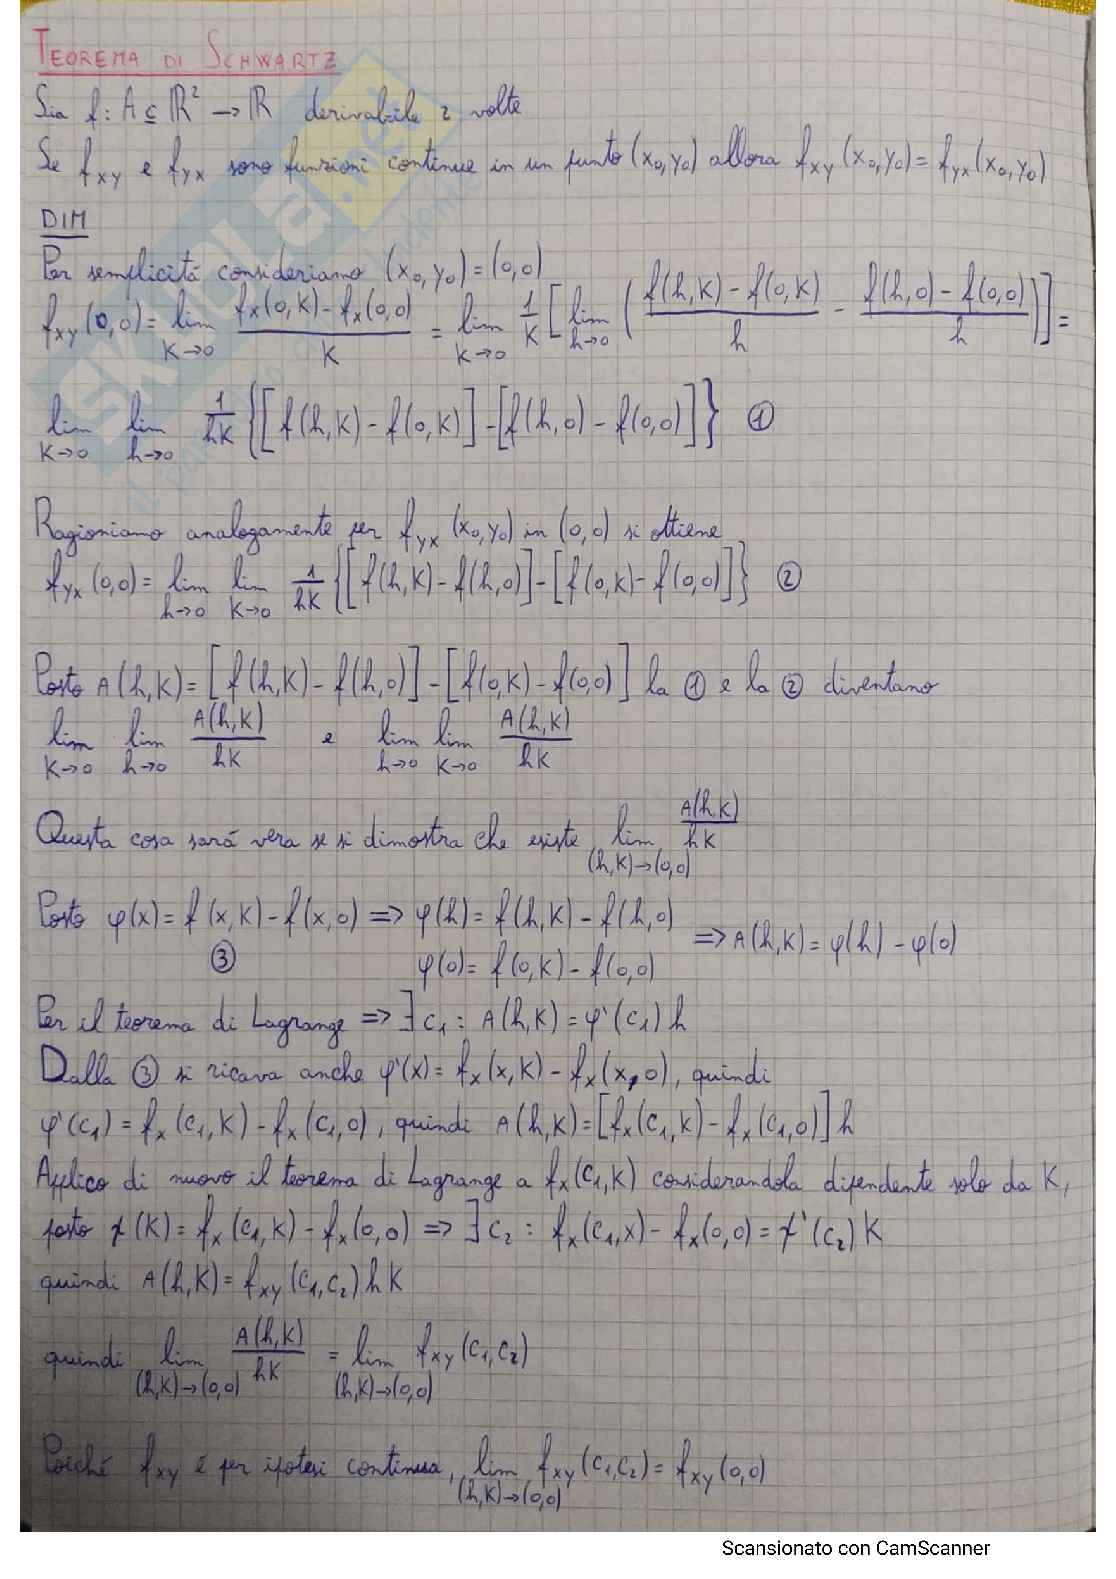 TEOREMA DI SCHWARTZ
Sia f: A ⊆ ℝ² → ℝ derivabile 2 volte
Se f_xy e f_yx sono funzioni continue in un punto (x₀,y₀) allora f_xy (x₀,y₀) = f_yx (x₀,y₀)
DIM
Per semplicitá consideriamo (x₀,y₀) = (0,0)
f_xy (0,0) = lim_{K→0} (f_x(0,K) - f_x(0,0))/K = lim_{K→0} 1/K [ lim_{h→0} ( (f(h,K) - f(0,K))/h - (f(h,0) - f(0,0))/h ) ] =
lim_{K→0} lim_{h→0} 1/hK {[f(h,K) - f(0,K)] - [f(h,0) - f(0,0)]} ①
Ragioniamo analogamente per f_yx (x₀,y₀) in (0,0) si ottiene
f_yx (0,0) = lim_{h→0} lim_{K→0} 1/hK {[f(h,K) - f(h,0)] - [f(0,K) - f(0,0)]} ②
Posto A(h,K) = [f(h,K) - f(h,0)] - [f(0,K) - f(0,0)] la ① e la ② diventano
lim_{K→0} lim_{h→0} A(h,K)/hK e lim_{h→0} lim_{K→0} A(h,K)/hK
Questa cosa sará vera se si dimostra che esiste lim_{(h,K)→(0,0)} A(h,K)/hK
Posto φ(x) = f(x,K) - f(x,0) => φ(h) = f(h,K) - f(h,0)
③ φ(0) = f(0,K) - f(0,0) => A(h,K) = φ(h) - φ(0)
Per il teorema di Lagrange => ∃ c₁ : A(h,K) = φ'(c₁) h
Dalla ③ si ricava anche φ'(x) = f_x (x,K) - f_x (x,0), quindi
φ'(c₁) = f_x (c₁,K) - f_x (c₁,0), quindi A(h,K) = [f_x (c₁,K) - f_x (c₁,0)] h
Applico di nuovo il teorema di Lagrange a f_x (c₁,K) considerandola dipendente solo da K,
posto γ(K) = f_x (c₁,K) - f_x (0,0) => ∃ c₂ : f_x (c₁,x) - f_x (0,0) = γ'(c₂) K
quindi A(h,K) = f_xy (c₁,c₂) h K
quindi lim_{(h,K)→(0,0)} A(h,K)/hK = lim_{(h,K)→(0,0)} f_xy (c₁,c₂)
Poiché f_xy é per ipotesi continua, lim_{(h,K)→(0,0)} f_xy (c₁,c₂) = f_xy (0,0)
Scansionato con CamScanner